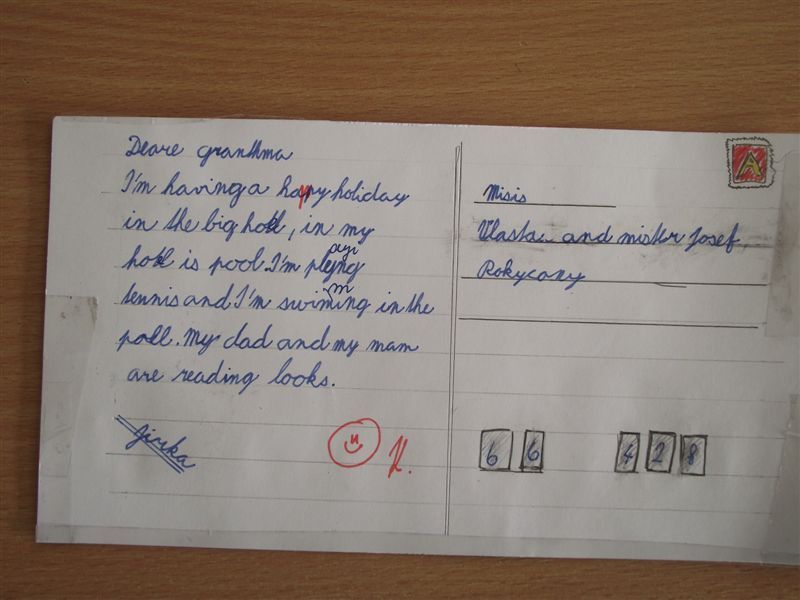 Deare granthma
I'm having a happy holiday
in the big hotel, in my
hotel is pool. I'm playing
tennis and I'm swimming in the
pool. My dad and my mam
are reading books.
Jirka
K.
A
Misis
Vlasta and mister Josef,
Rokycany
66 428